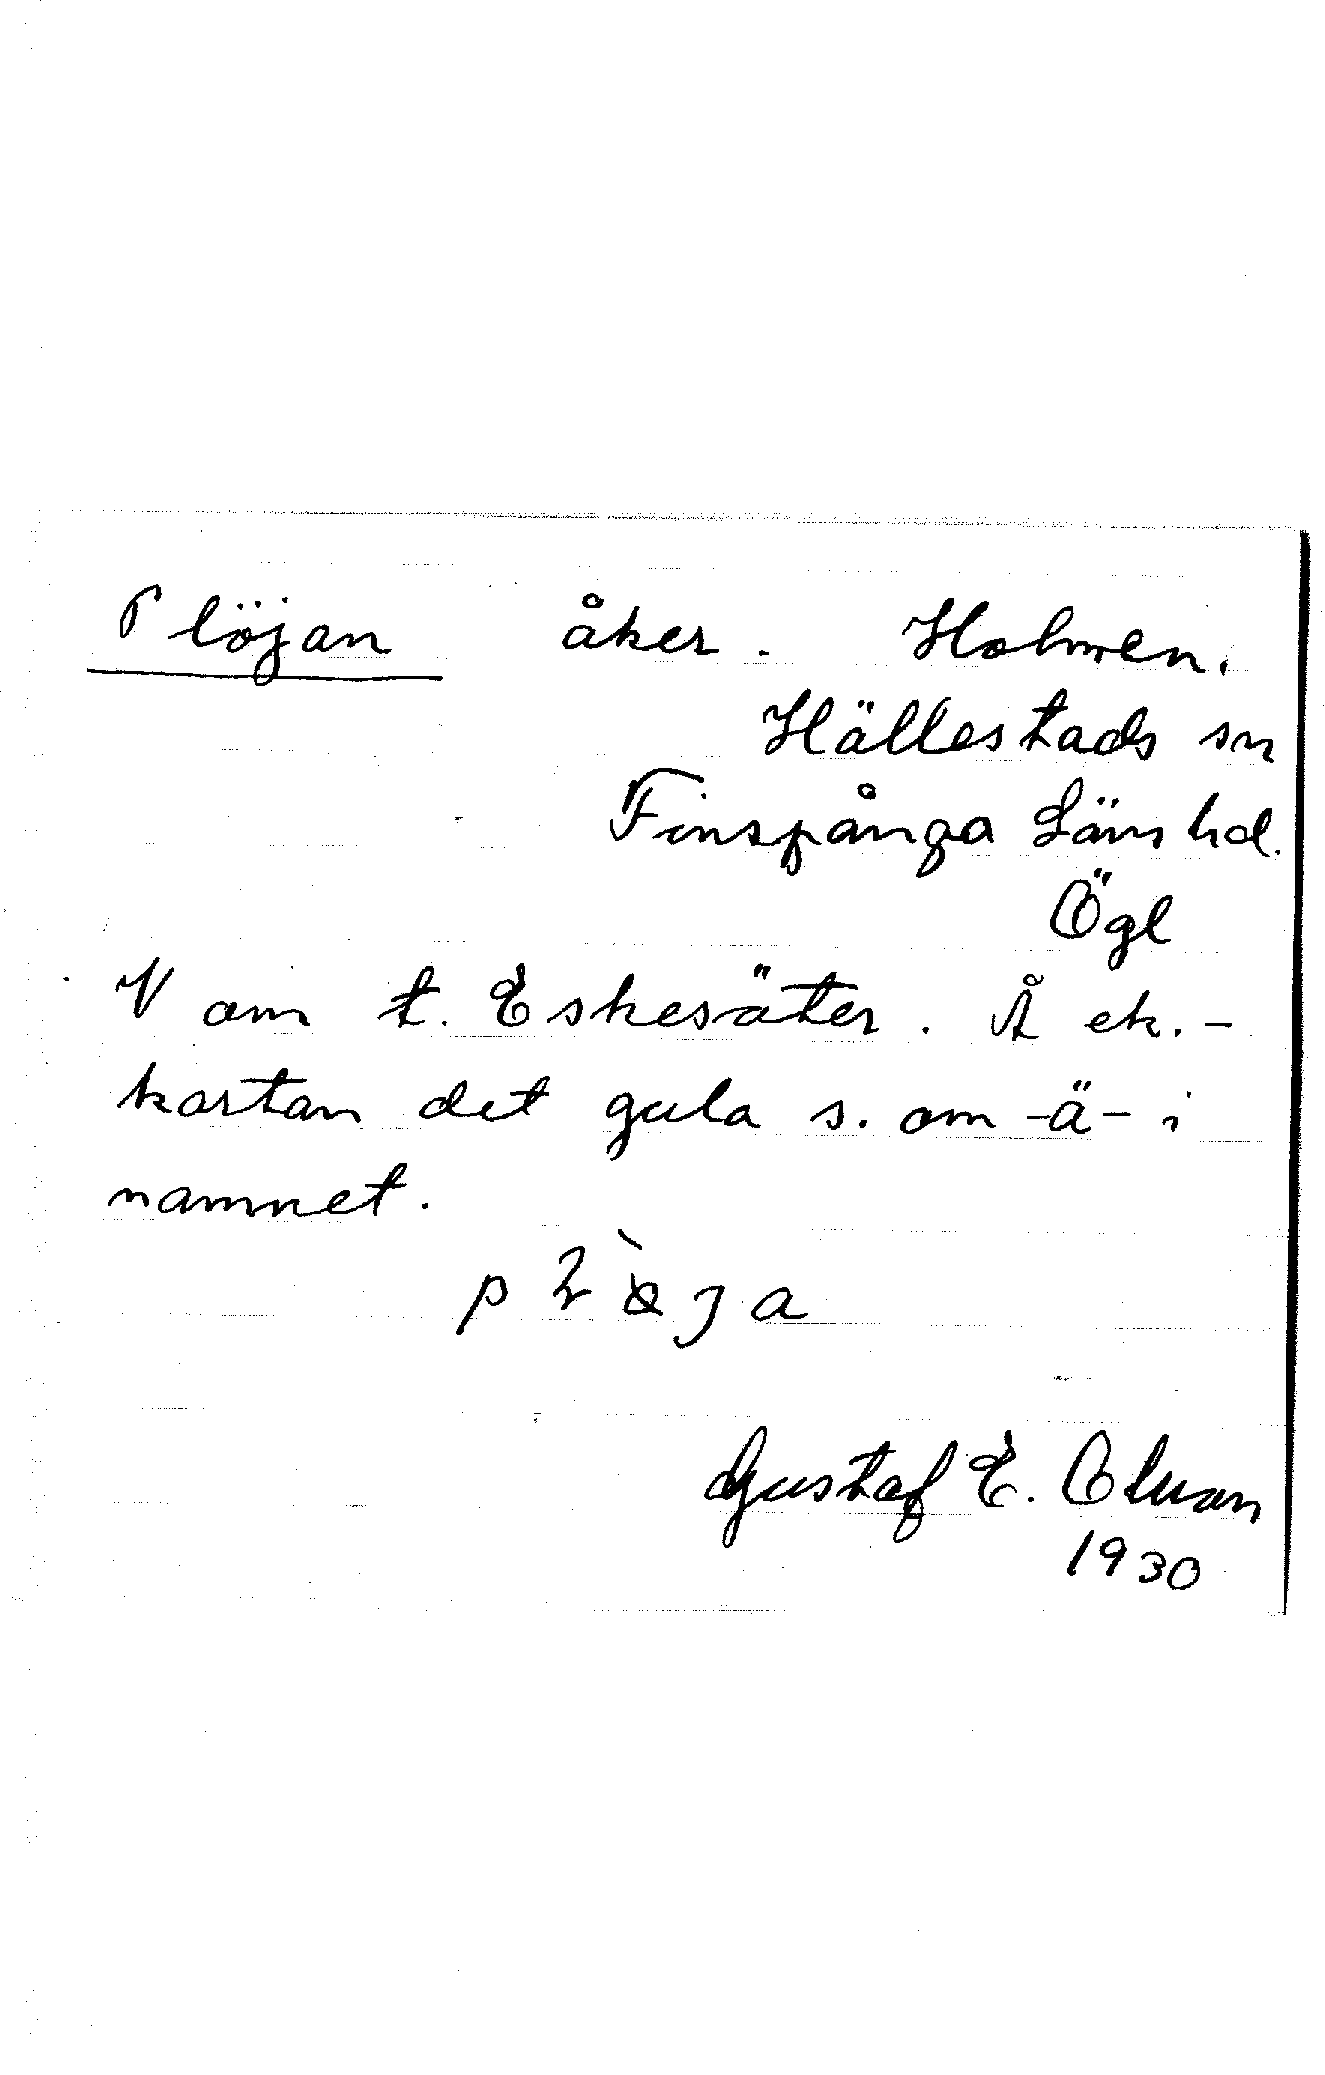 Plöjan åker. Holmen.
Hällestads sn
Finspånga Läns hd.
Ögl
V om t. Eskesäter. Å ek.-
kartan det gula s. om -ä- i
namnet.
Gustaf E. Olson
1930